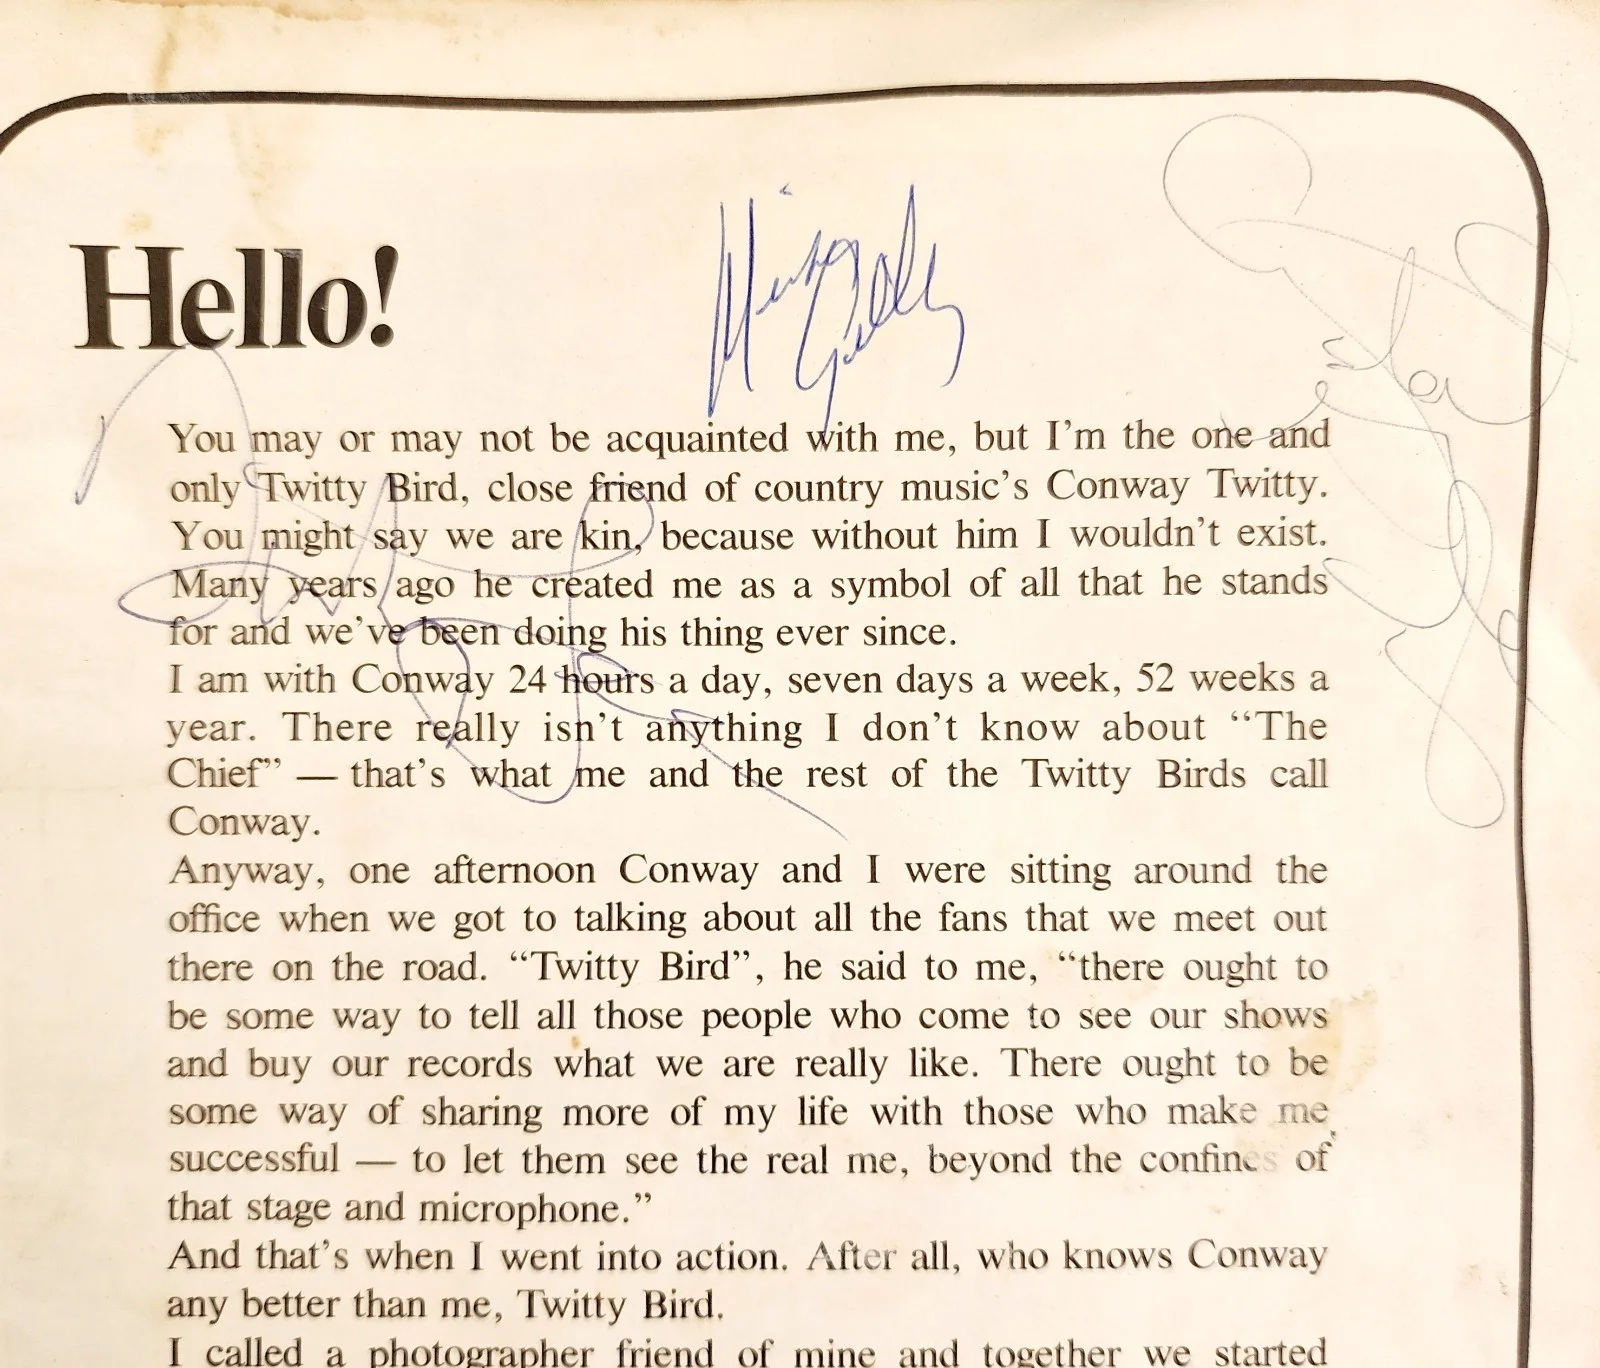 Hello!
Mickey
Gilley
You may or may not be acquainted with me, but I'm the one and
only Twitty Bird, close friend of country music's Conway Twitty.
You might say we are kin, because without him I wouldn't exist.
Many years ago he created me as a symbol of all that he stands
for and we've been doing his thing ever since.
I am with Conway 24 hours a day, seven days a week, 52 weeks a
year. There really isn't anything I don't know about “The
Chief” — that's what me and the rest of the Twitty Birds call
Conway.
Anyway, one afternoon Conway and I were sitting around the
office when we got to talking about all the fans that we meet out
there on the road. “Twitty Bird”, he said to me, “there ought to
be some way to tell all those people who come to see our shows
and buy our records what we are really like. There ought to be
some way of sharing more of my life with those who make me
successful — to let them see the real me, beyond the confines of
that stage and microphone.”
And that's when I went into action. After all, who knows Conway
any better than me, Twitty Bird.
I called a photographer friend of mine and together we started